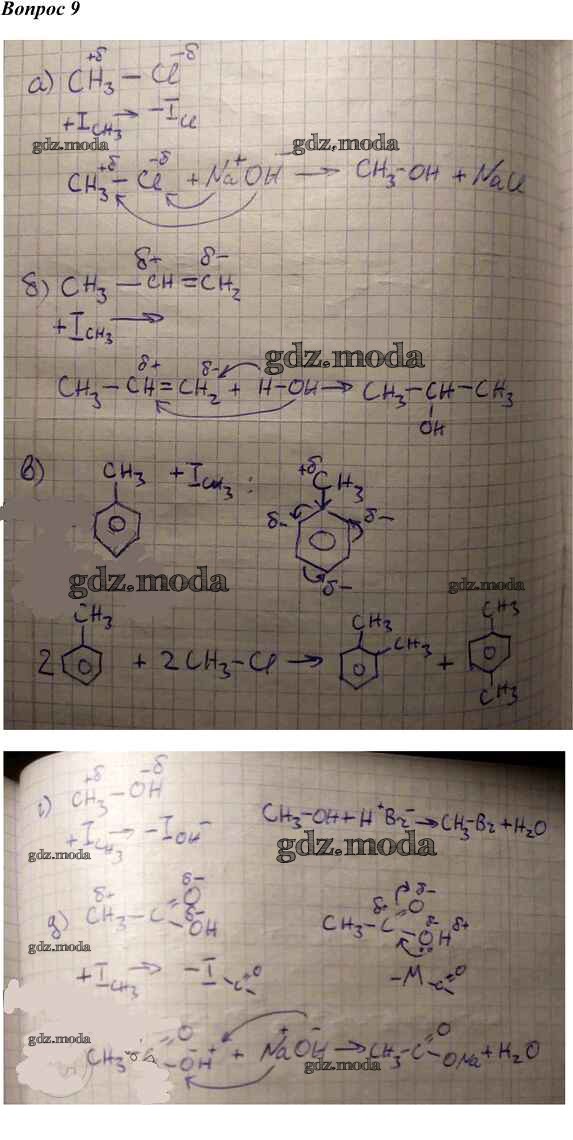 Вопрос 9
а) CH₃ +δ — Cl −δ
+I CH₃ → −I Cl
gdz.moda gdz.moda
CH₃ +δ — Cl −δ + Na⁺OH⁻ → CH₃–OH + NaCl
б) CH₃ — CH δ+ = CH₂ δ−
+I CH₃ →
gdz.moda
CH₃ — CH δ+ = CH₂ δ− + H–OH → CH₃ — CH — CH₃
OH
в) CH₃ +I CH₃ : +δ CH₃
δ− δ−
δ−
gdz.moda gdz.moda
CH₃ CH₃ CH₃ CH₃
2 + 2CH₃–Cl → +
CH₃
г) CH₃ +δ — OH −δ
CH₃–OH + H⁺Br⁻ → CH₃–Br + H₂O
+I CH₃ → −I OH⁻
gdz.moda gdz.moda
д) CH₃ δ+ — C O δ− OH δ− CH₃ — C δ+ O δ− OH δ− δ+
gdz.moda
+I CH₃ → −I C=O −M C=O
gdz.moda
CH₃ C O OH⁺ + Na⁺OH⁻ → CH₃–C O ONa + H₂O
gdz.moda